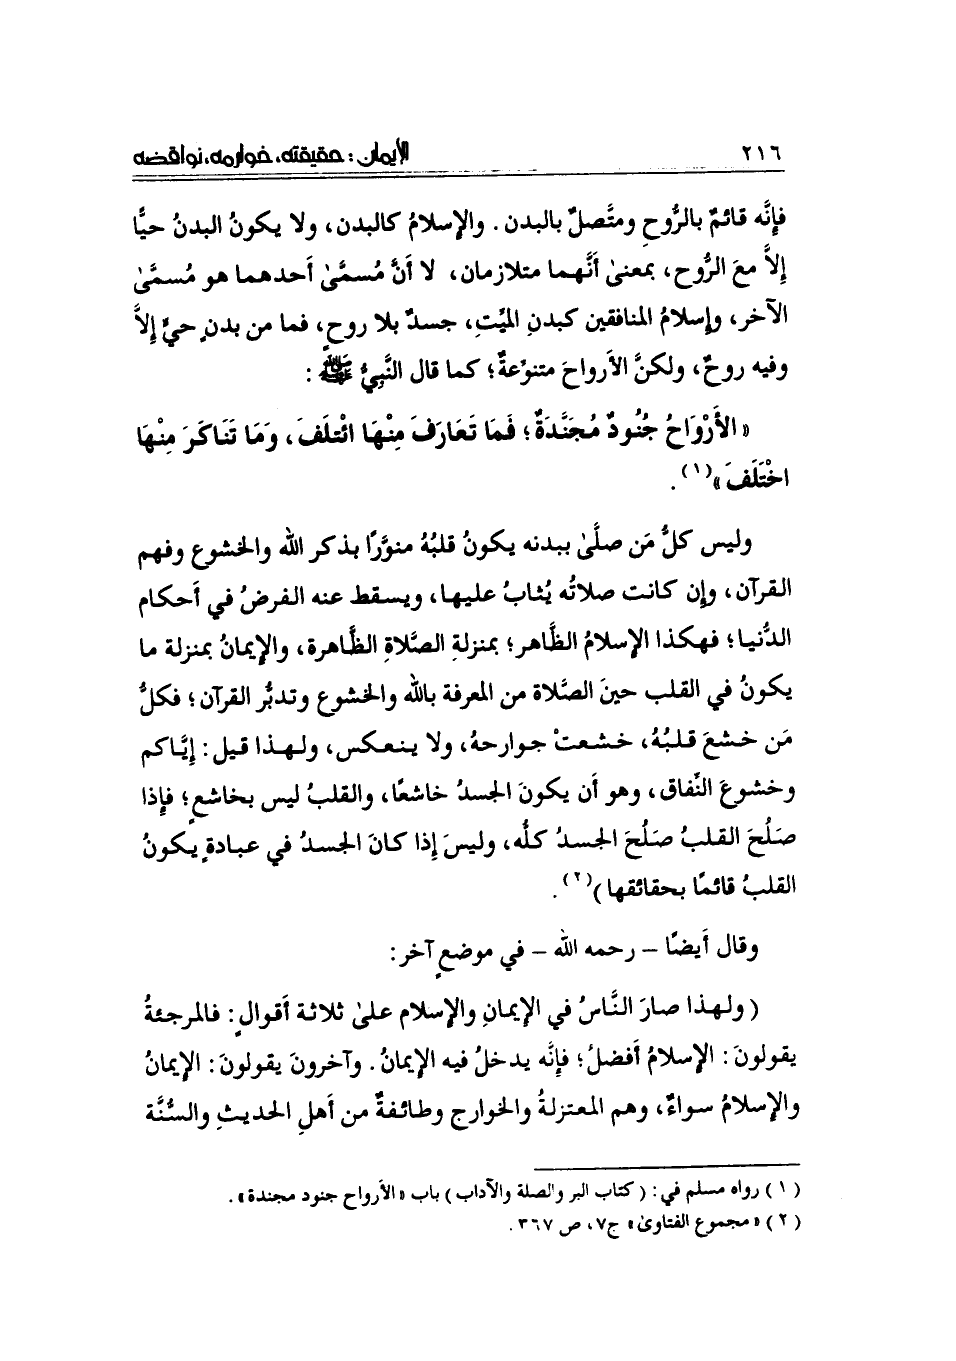 ٢١٦
الأيمان : حقيقته، خوارمه، نواقضه
فإنَّه قائمٌ بالرُّوح ومتَّصلٌ بالبدن . والإسلامُ كالبدن، ولا يكونُ البدنُ حيًّا
إلاَّ معَ الرُّوح، بمعنىٰ أنَّهما متلازمان، لا أنَّ مُسمَّىٰ أحدهما هو مُسمَّىٰ
الآخر، وإسلامُ المنافقين كبدنِ الميِّتِ، جسدٌ بلا روحٍ، فما من بدنٍ حيٍّ إلاَّ
وفيه روحٌ، ولكنَّ الأرواحَ متنوِّعةٌ؛ كما قال النَّبيُّ ﷺ :
« الأَرْوَاحُ جُنُودٌ مُجَنَّدَةٌ؛ فَمَا تَعَارَفَ مِنْهَا ائْتلَفَ، وَمَا تَنَاكَرَ مِنْهَا
اخْتَلَفَ »(١) .
وليس كلُّ مَن صلَّىٰ ببدنه يكونُ قلبُهُ منوَّرًا بذكر الله والخشوع وفهم
القرآن، وإن كانت صلاتُه يُثابُ عليها، ويسقط عنه الفرضُ في أحكام
الدُّنيا؛ فهكذا الإسلامُ الظَّاهر؛ بمنزلةِ الصَّلاةِ الظَّاهرة، والإيمانُ بمنزلة ما
يكونُ في القلب حينَ الصَّلاة من المعرفة بالله والخشوع وتدبُّر القرآن؛ فكلُّ
مَن خشعَ قلبُهُ، خشعتْ جوارحهُ، ولا ينعكس، ولهذا قيل : إيَّاكم
وخشوعَ النِّفاق، وهو أن يكونَ الجسدُ خاشعًا، والقلبُ ليس بخاشعٍ؛ فإذا
صَلُحَ القلبُ صَلُحَ الجسدُ كلُّه، وليسَ إذا كانَ الجسدُ في عبادةٍ يكونُ
القلبُ قائمًا بحقائقها )(٢) .
وقال أيضًا – رحمه الله – في موضعٍ آخر :
( ولهذا صارَ النَّاسُ في الإيمانِ والإسلام علىٰ ثلاثة أقوالٍ : فالمرجئةُ
يقولونَ : الإسلامُ أفضلُ؛ فإنَّه يدخلُ فيه الإيمانُ . وآخرونَ يقولونَ : الإيمانُ
والإسلامُ سواءٌ، وهم المعتزلةُ والخوارج وطائفةٌ من أهلِ الحديثِ والسُّنَّة
( ١ ) رواه مسلم في : ( كتاب البر والصلة والآداب ) باب « الأرواح جنود مجندة » .
( ٢ ) « مجموع الفتاوىٰ » ج٧، ص ٣٦٧ .